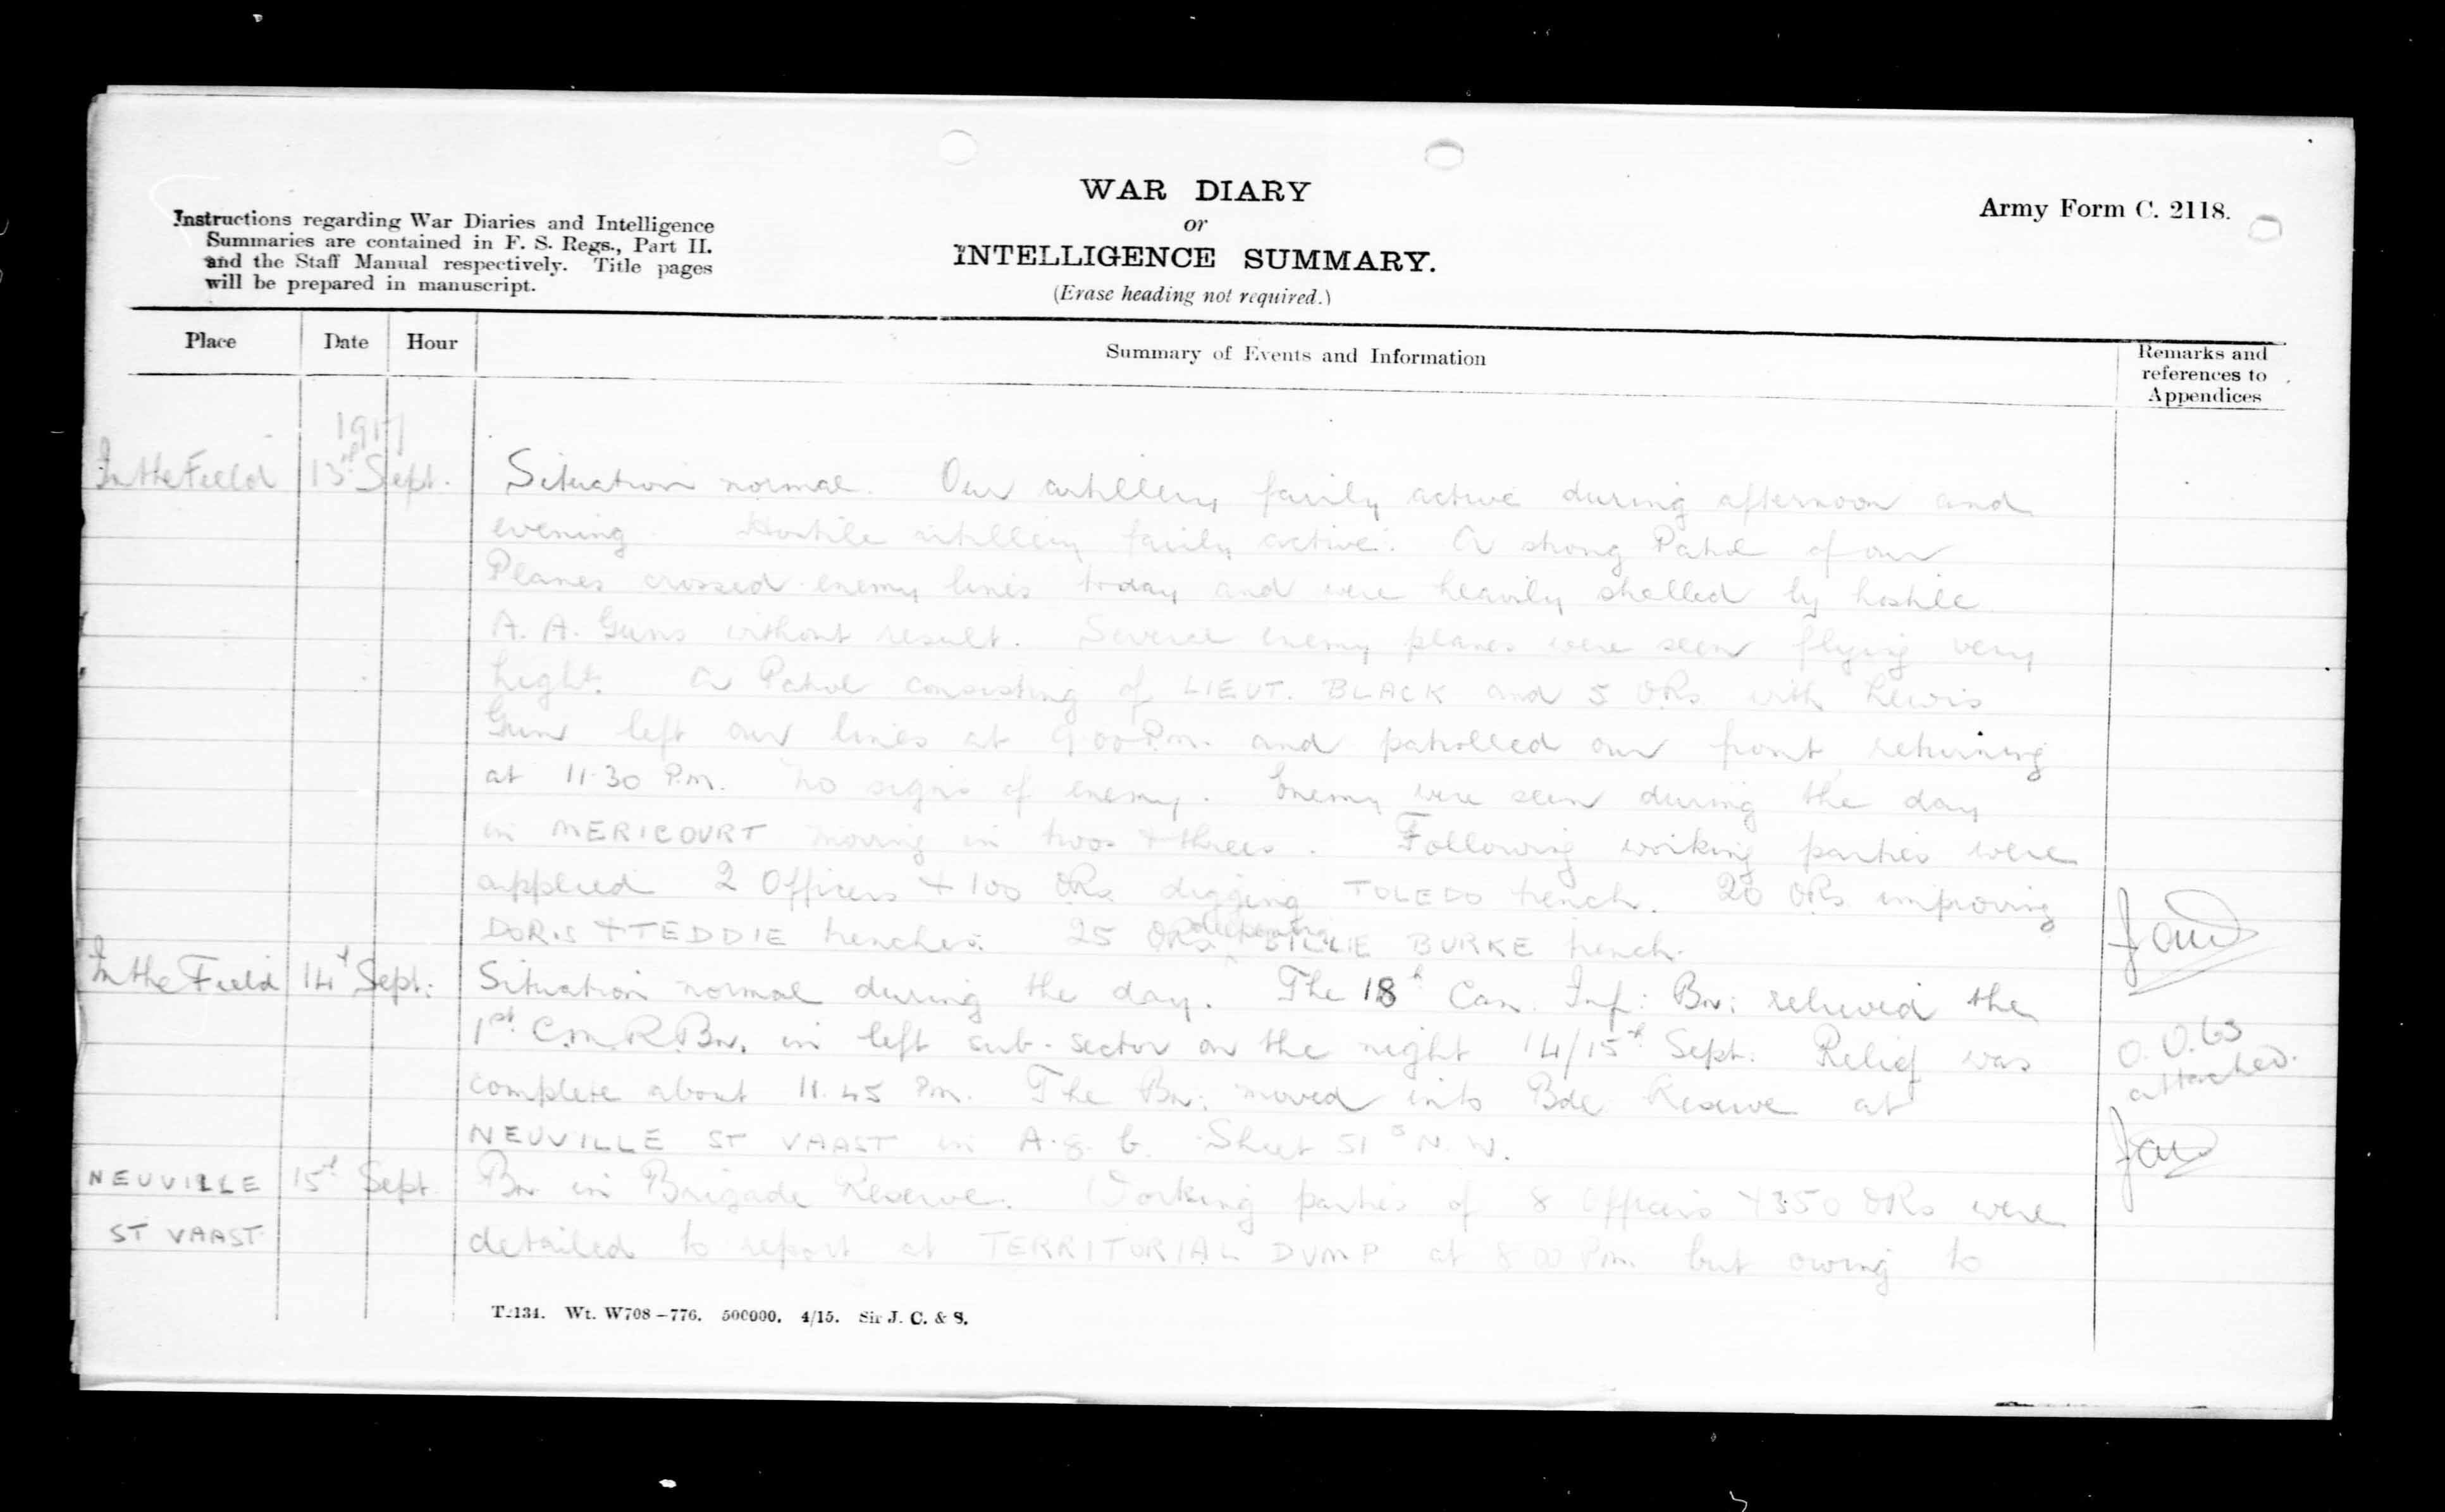 Instructions regarding War Diaries and Intelligence
Summaries are contained in F. S. Regs., Part II.
and the Staff Manual respectively. Title pages
will be prepared in manuscript.
WAR DIARY
or
INTELLIGENCE SUMMARY.
(Erase heading not required.)
Army Form C. 2118.
Place Date Hour Summary of Events and Information Remarks and references to Appendices
1917
In the Field 13th Sept. Situation normal. Our artillery fairly active during afternoon and
evening. Hostile artillery fairly active. A strong Patrol of our
Planes crossed enemy lines today and were heavily shelled by hostile
A. A. Guns without result. Several enemy planes were seen flying very
hight. A Patrol consisting of LIEUT. BLACK and 5 ORs with Lewis
Gun left our lines at 9.00 P.m. and patrolled our front returning
at 11.30 P.m. No signs of enemy. Enemy were seen during the day
in MERICOURT moving in twos & threes. Following working parties were
supplied 2 Officers & 100 ORs digging TOLEDO trench. 20 ORs improving
DORIS & TEDDIE trenches. 25 ORs deepening BILLIE BURKE trench.
In the Field 14th Sept. Situation normal during the day. The 18th Can. Inf: Bn: relieved the
1st C.M.R. Bn. in left sub-sector on the night 14/15th Sept. Relief was O.O.63
complete about 11.45 Pm. The Bn: moved into Bde Reserve at attached.
NEUVILLE ST VAAST in A.8.b. Sheet 51 N.W.
NEUVILLE 15th Sept. Bn in Brigade Reserve. Working parties of 8 Officers & 350 ORs were
ST VAAST detailed to report at TERRITORIAL DUMP at 8.00 P.m. but owing to
T.134. Wt. W708–776. 500000. 4/15. Sir J. C. & S.